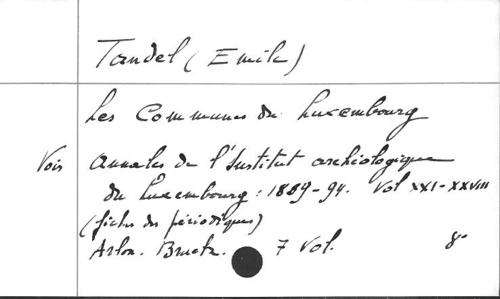 Tandel (Emile)
Les Communes du Luxembourg
Vois Annales de l'Institut archéologique
du Luxembourg : 1889-94. Vol XXI-XXVIII
(fiches des périodiques)
Arlon. Bruck. 7 Vol. 8°